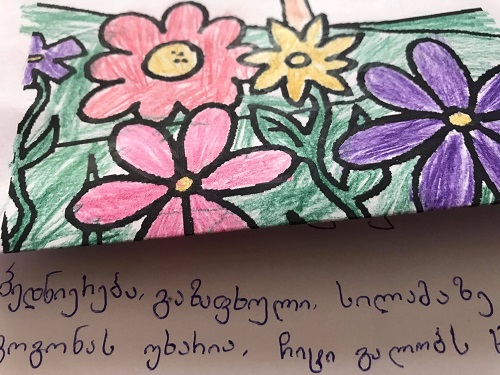 ბედნიერება, გაზაფხული, სილამაზე
გოგონას უხარია, ჩიტი გალობს